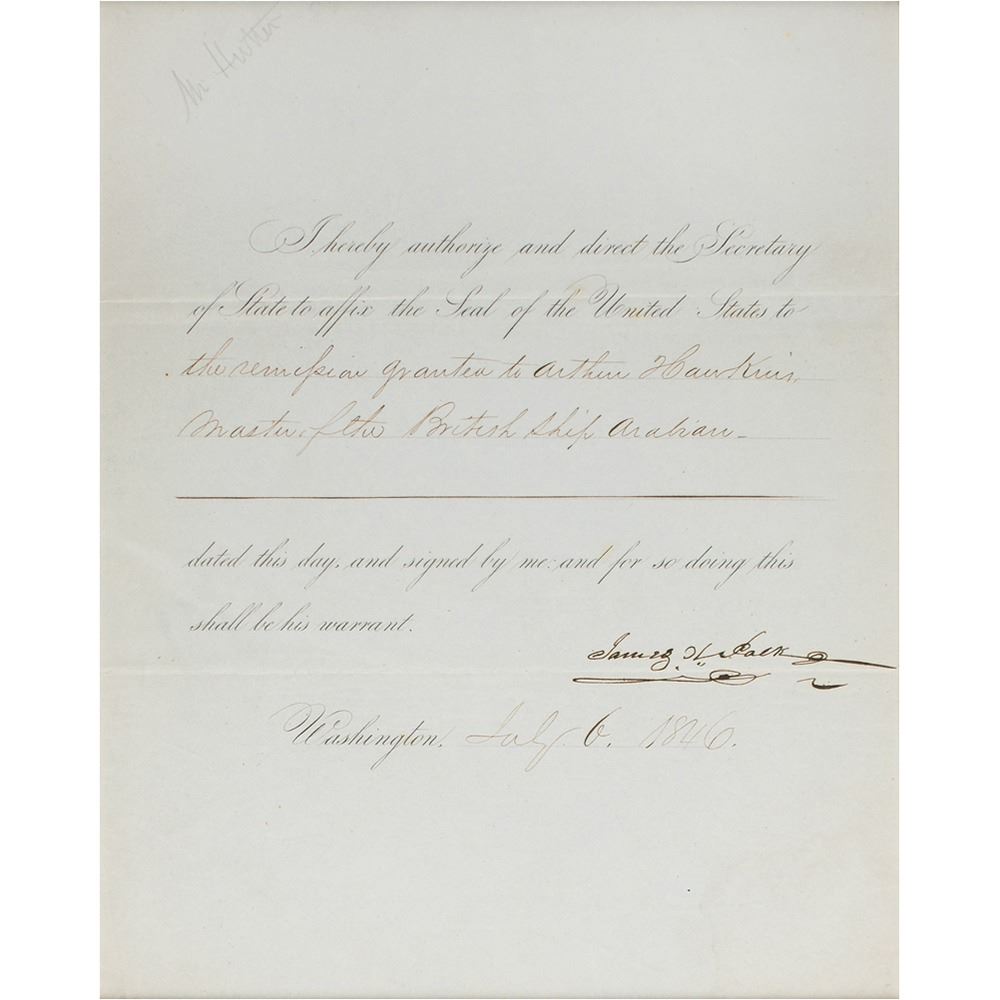 Mr Hutter
I hereby authorize and direct the Secretary
of State to affix the Seal of the United States to
the remission granted to Arthur Hawkins,
Master of the British Ship Arabian-
dated this day, and signed by me: and for so doing this
shall be his warrant.
James K. Polk
Washington, July 6. 1846.